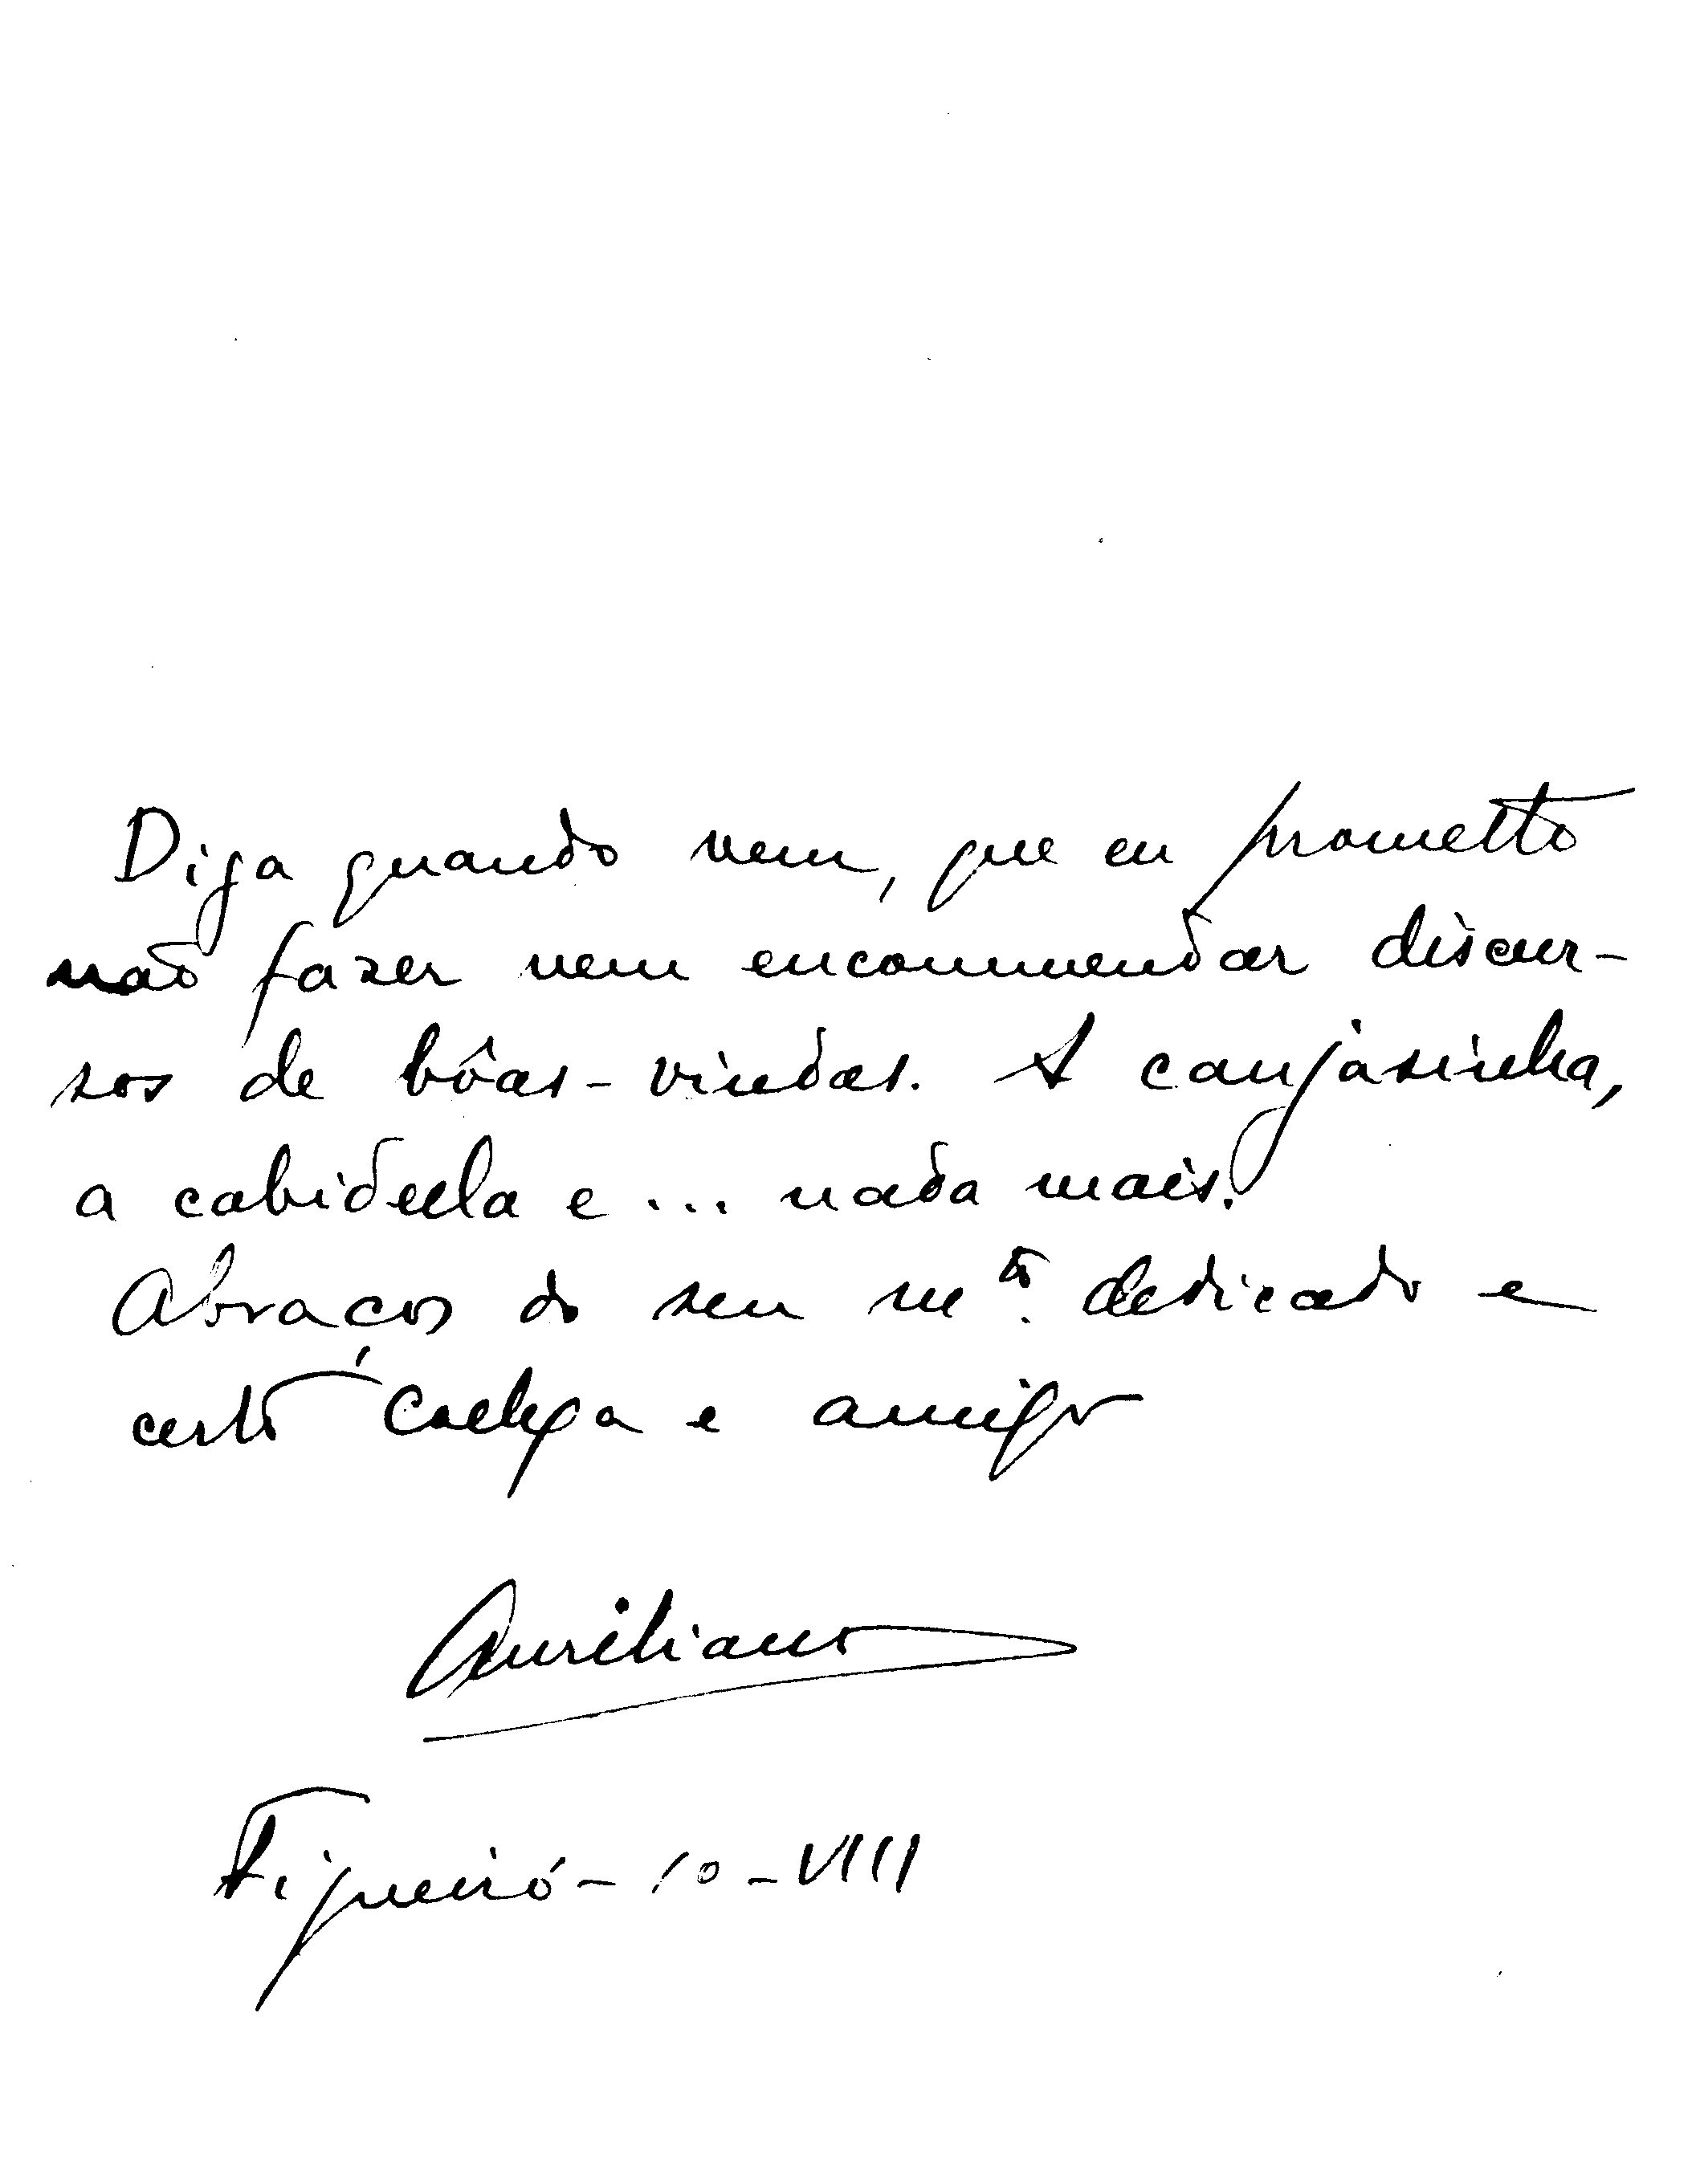 Diga quando vem, que eu prometto
não fazer nem encommendar discur-
sos de bôas-vindas. A canjasinha,
a cabidella e ... nada mais.
Abraços do seu mᵗᵒ. dedicado e
certo collega e amigo
Aureliano
Figueiró - 10 - VIII